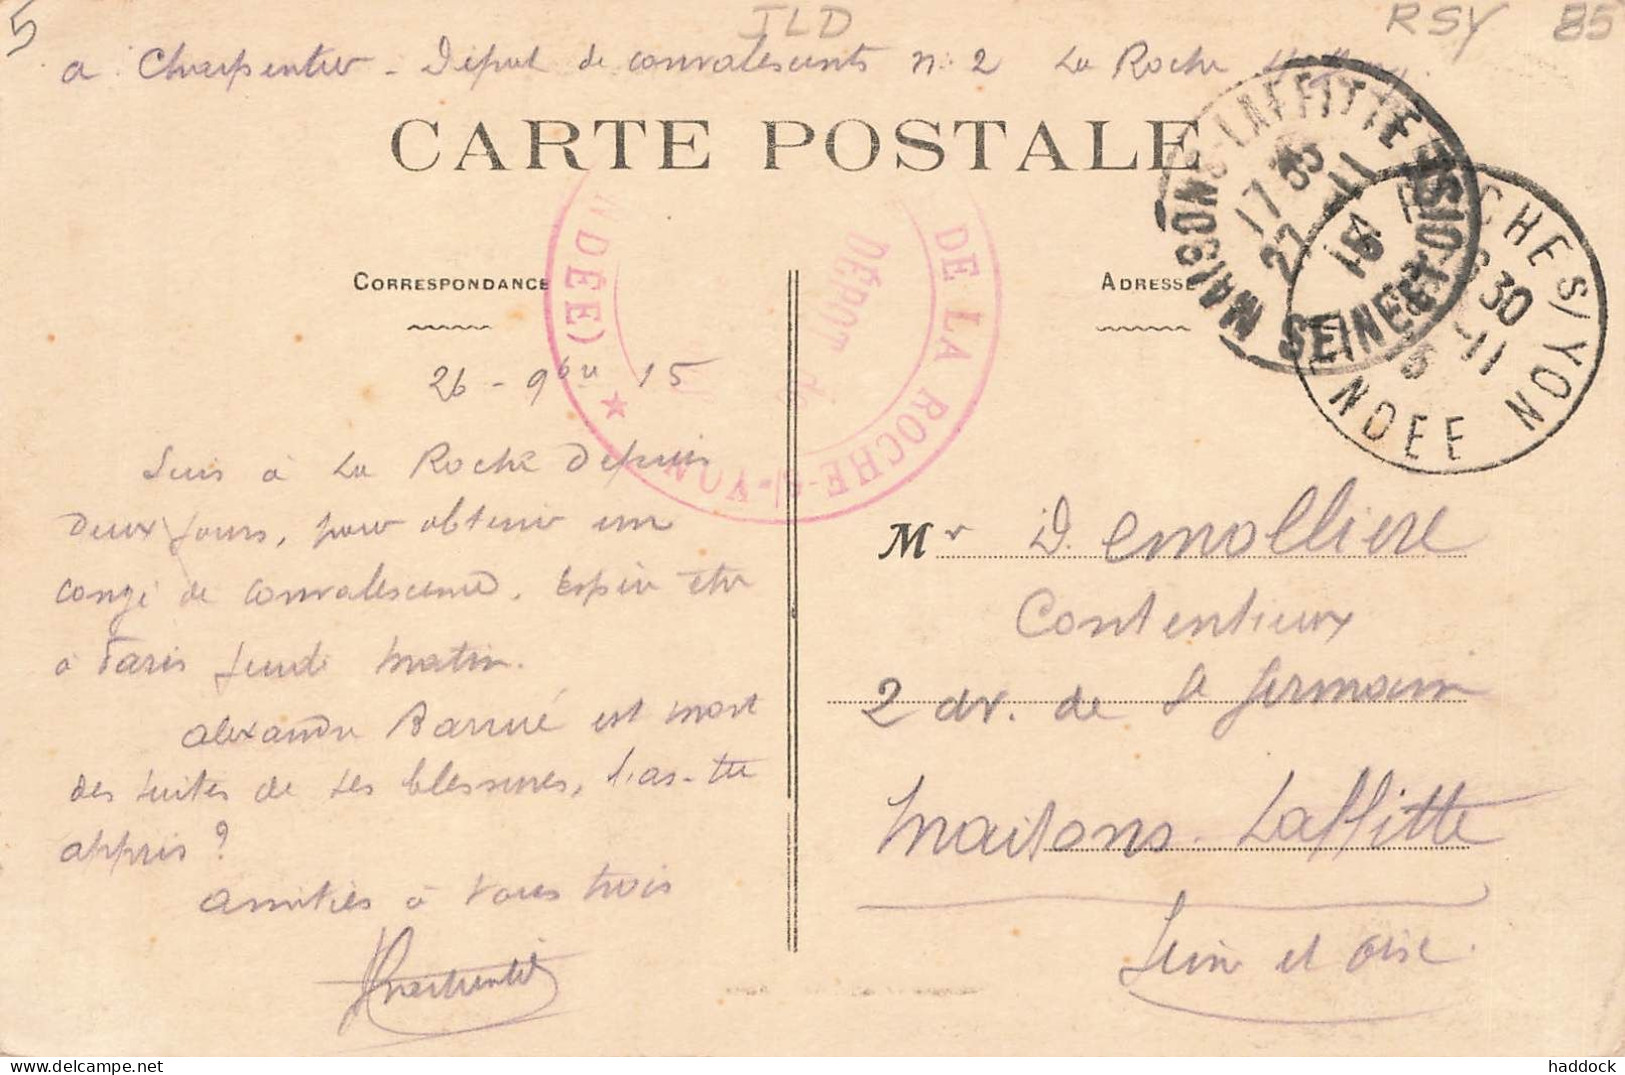 5
JLD
RSY 85
a Charpentier - Dépôt de convalescents n. 2 La Roche
CARTE POSTALE
CORRESPONDANCE
ADRESSE
DE LA ROCHE-S/-YON
NDÉE) ★
DÉPOT
de
MAISONS-LAFFITTE
SEINE-ET-OISE
17
27 -11
15
CHE S/ YON
6 30
-11
NDEE
26 - 9bre 15
Suis à La Roche depuis
deux jours, pour obtenir un
congé de convalescence. Espère être
à Paris jeudi matin.
Alexandre Barrué est mort
des suites de ses blessures, l'as-tu
appris ?
Amitiés à vous trois
Charpentier
Mr D. emolliere
Contentieux
2 av. de St Germain
Maisons-Laffitte
Seine et Oise.
haddock